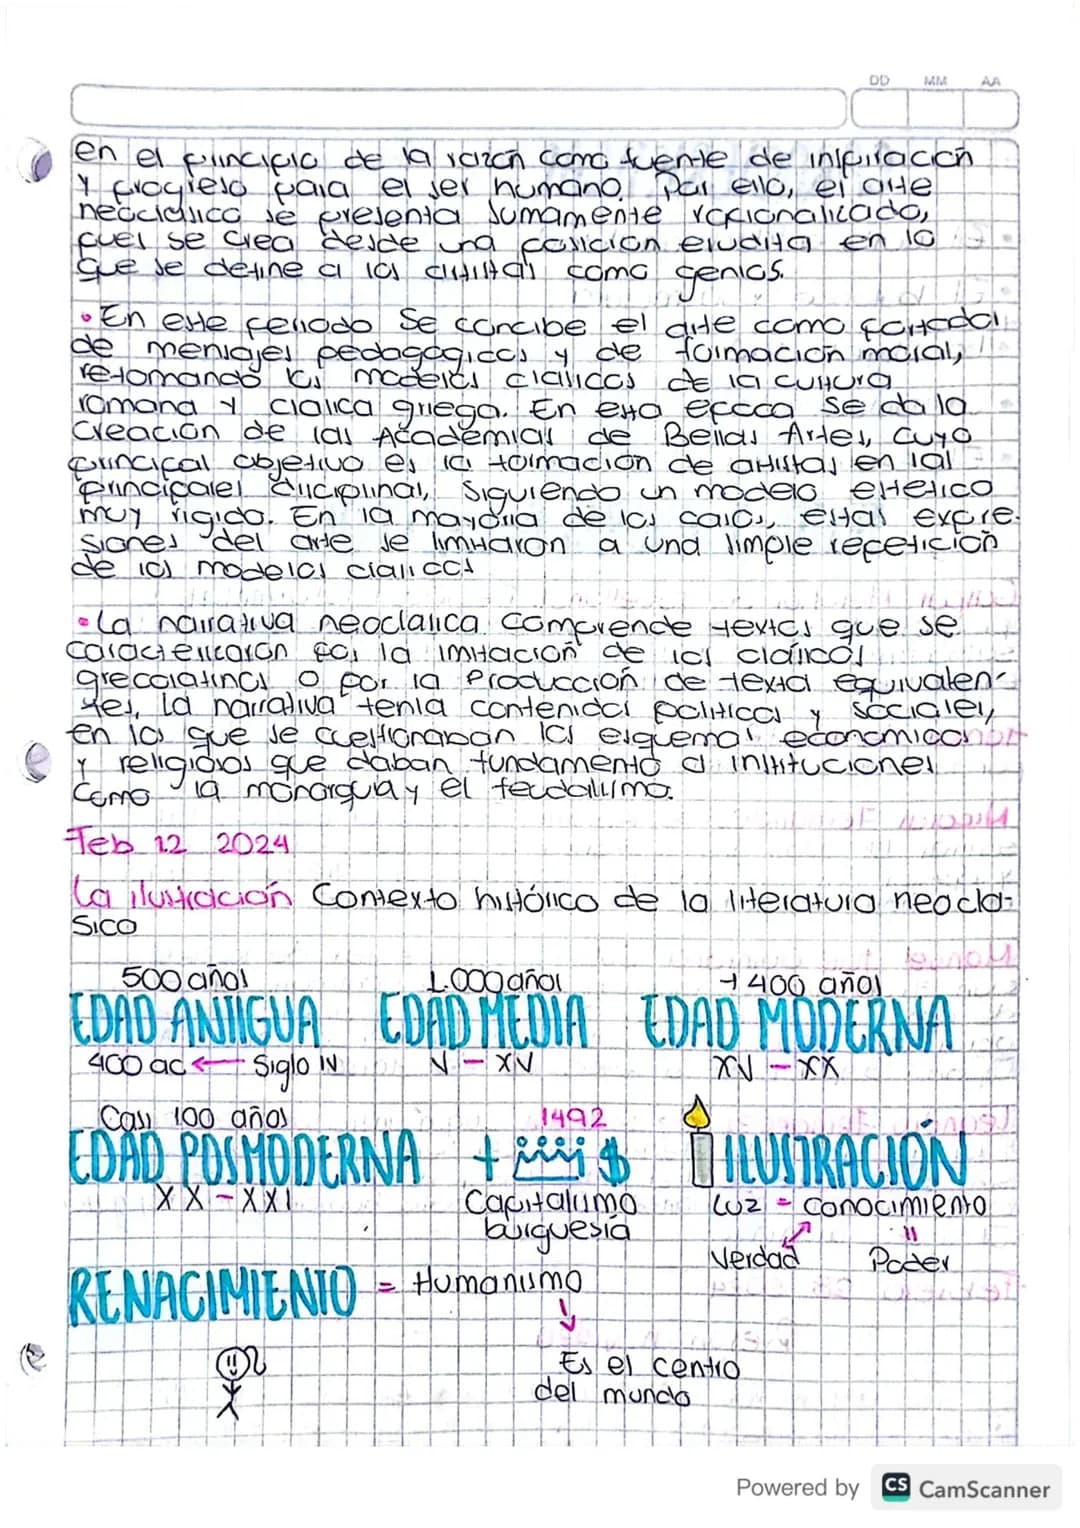 DD MM AA
en el principio de la razón como fuente de inspiración
y progreso para el ser humano. Por ello, el arte
neoclásico se presenta sumamente racionalizado,
pues se crea desde una posición erudita en la
que se define a los artistas como genios.
• En este periodo se concibe el arte como portador
de mensajes pedagógicos y de formación moral,
retomando los modelos clásicos de la cultura
romana y clasica griega. En esta epoca se da la
creación de las Academias de Bellas Artes, cuyo
principal objetivo es la formación de artistas en las
principales disciplinas, siguiendo un modelo estetico
muy rigido. En la mayoria de los casos, estas expre-
siones del arte se limitaron a una simple repetición
de los modelos clasicos
• La narrativa neoclasica comprende textos que se
caracterizaron por la imitación de los clásicos
grecolatinos o por la producción de textos equivalen-
tes. La narrativa tenia contenidos politicos y sociales,
en los que se cuestionaban los esquemas economicos
y religiosos que daban fundamento a instituciones
como la monarquia y el feudalismo.
Feb 12 2024
La ilustración Contexto histórico de la literatura neoclá-
sico
500 años 1.000 años + 400 años
EDAD ANTIGUA EDAD MEDIA EDAD MODERNA
400 ac ← Siglo IV V - XV XV - XX
Casi 100 años 1492
EDAD POSMODERNA + $ ILUSTRACIÓN
XX - XXI Capitalismo Luz = Conocimiento
burguesía "
Verdad Poder
RENACIMIENTO = Humanismo
Es el centro
del mundo
Powered by CS CamScanner